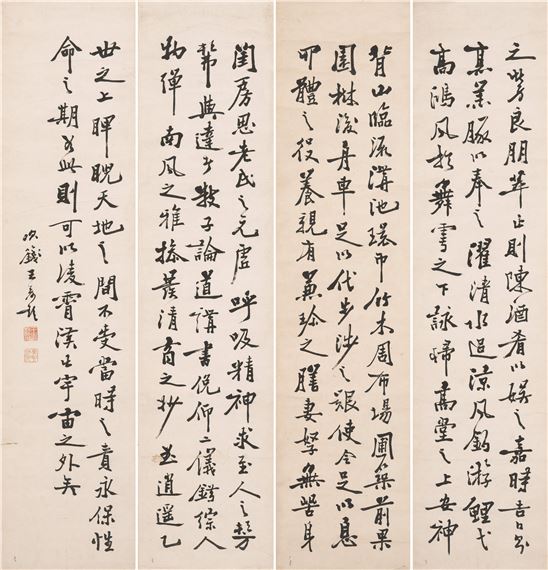 背山臨流溝池環帀竹木周布場圃築前果
園樹後舟車足以代步涉之艱使令足以息
四體之役養親有兼珍之膳妻孥無苦身
之勞良朋萃止則陳酒肴以娛之嘉時吉日則
烹羔豚以奉之濯清水追涼風釣游鯉弋
高鴻風於舞雩之下詠歸高堂之上安神
閨房思老氏之元虛呼吸精神求至人之髣
髴與達者數子論道講書俯仰二儀錯綜人
物彈南風之雅操發清商之妙曲逍遙乙
世之上睥睨天地之間不受當時之責永保性
命之期如此則可以凌霄漢出宇宙之外矣
次籛王